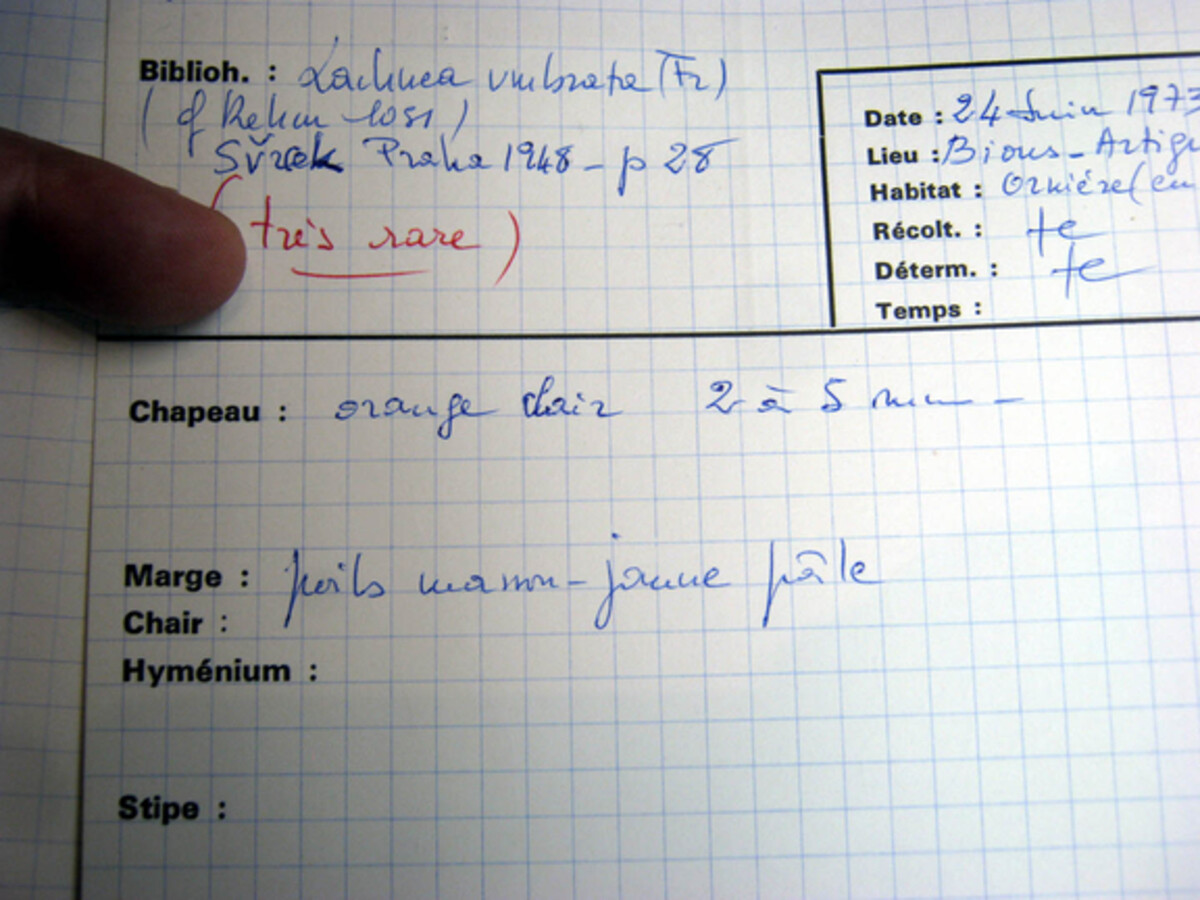 Biblioh. : Lachnea umbrata (Fr)
(cf Rehm 1051)
Svrcek Praha 1948 - p 28
(très rare)
Date : 24 Juin 1973
Lieu : Bious - Artigu
Habitat : Ornière (en
Récolt. :
Déterm. :
Temps :
Chapeau : orange clair 2 à 5 mm -
Marge : poils marron - jaune pâle
Chair :
Hyménium :
Stipe :